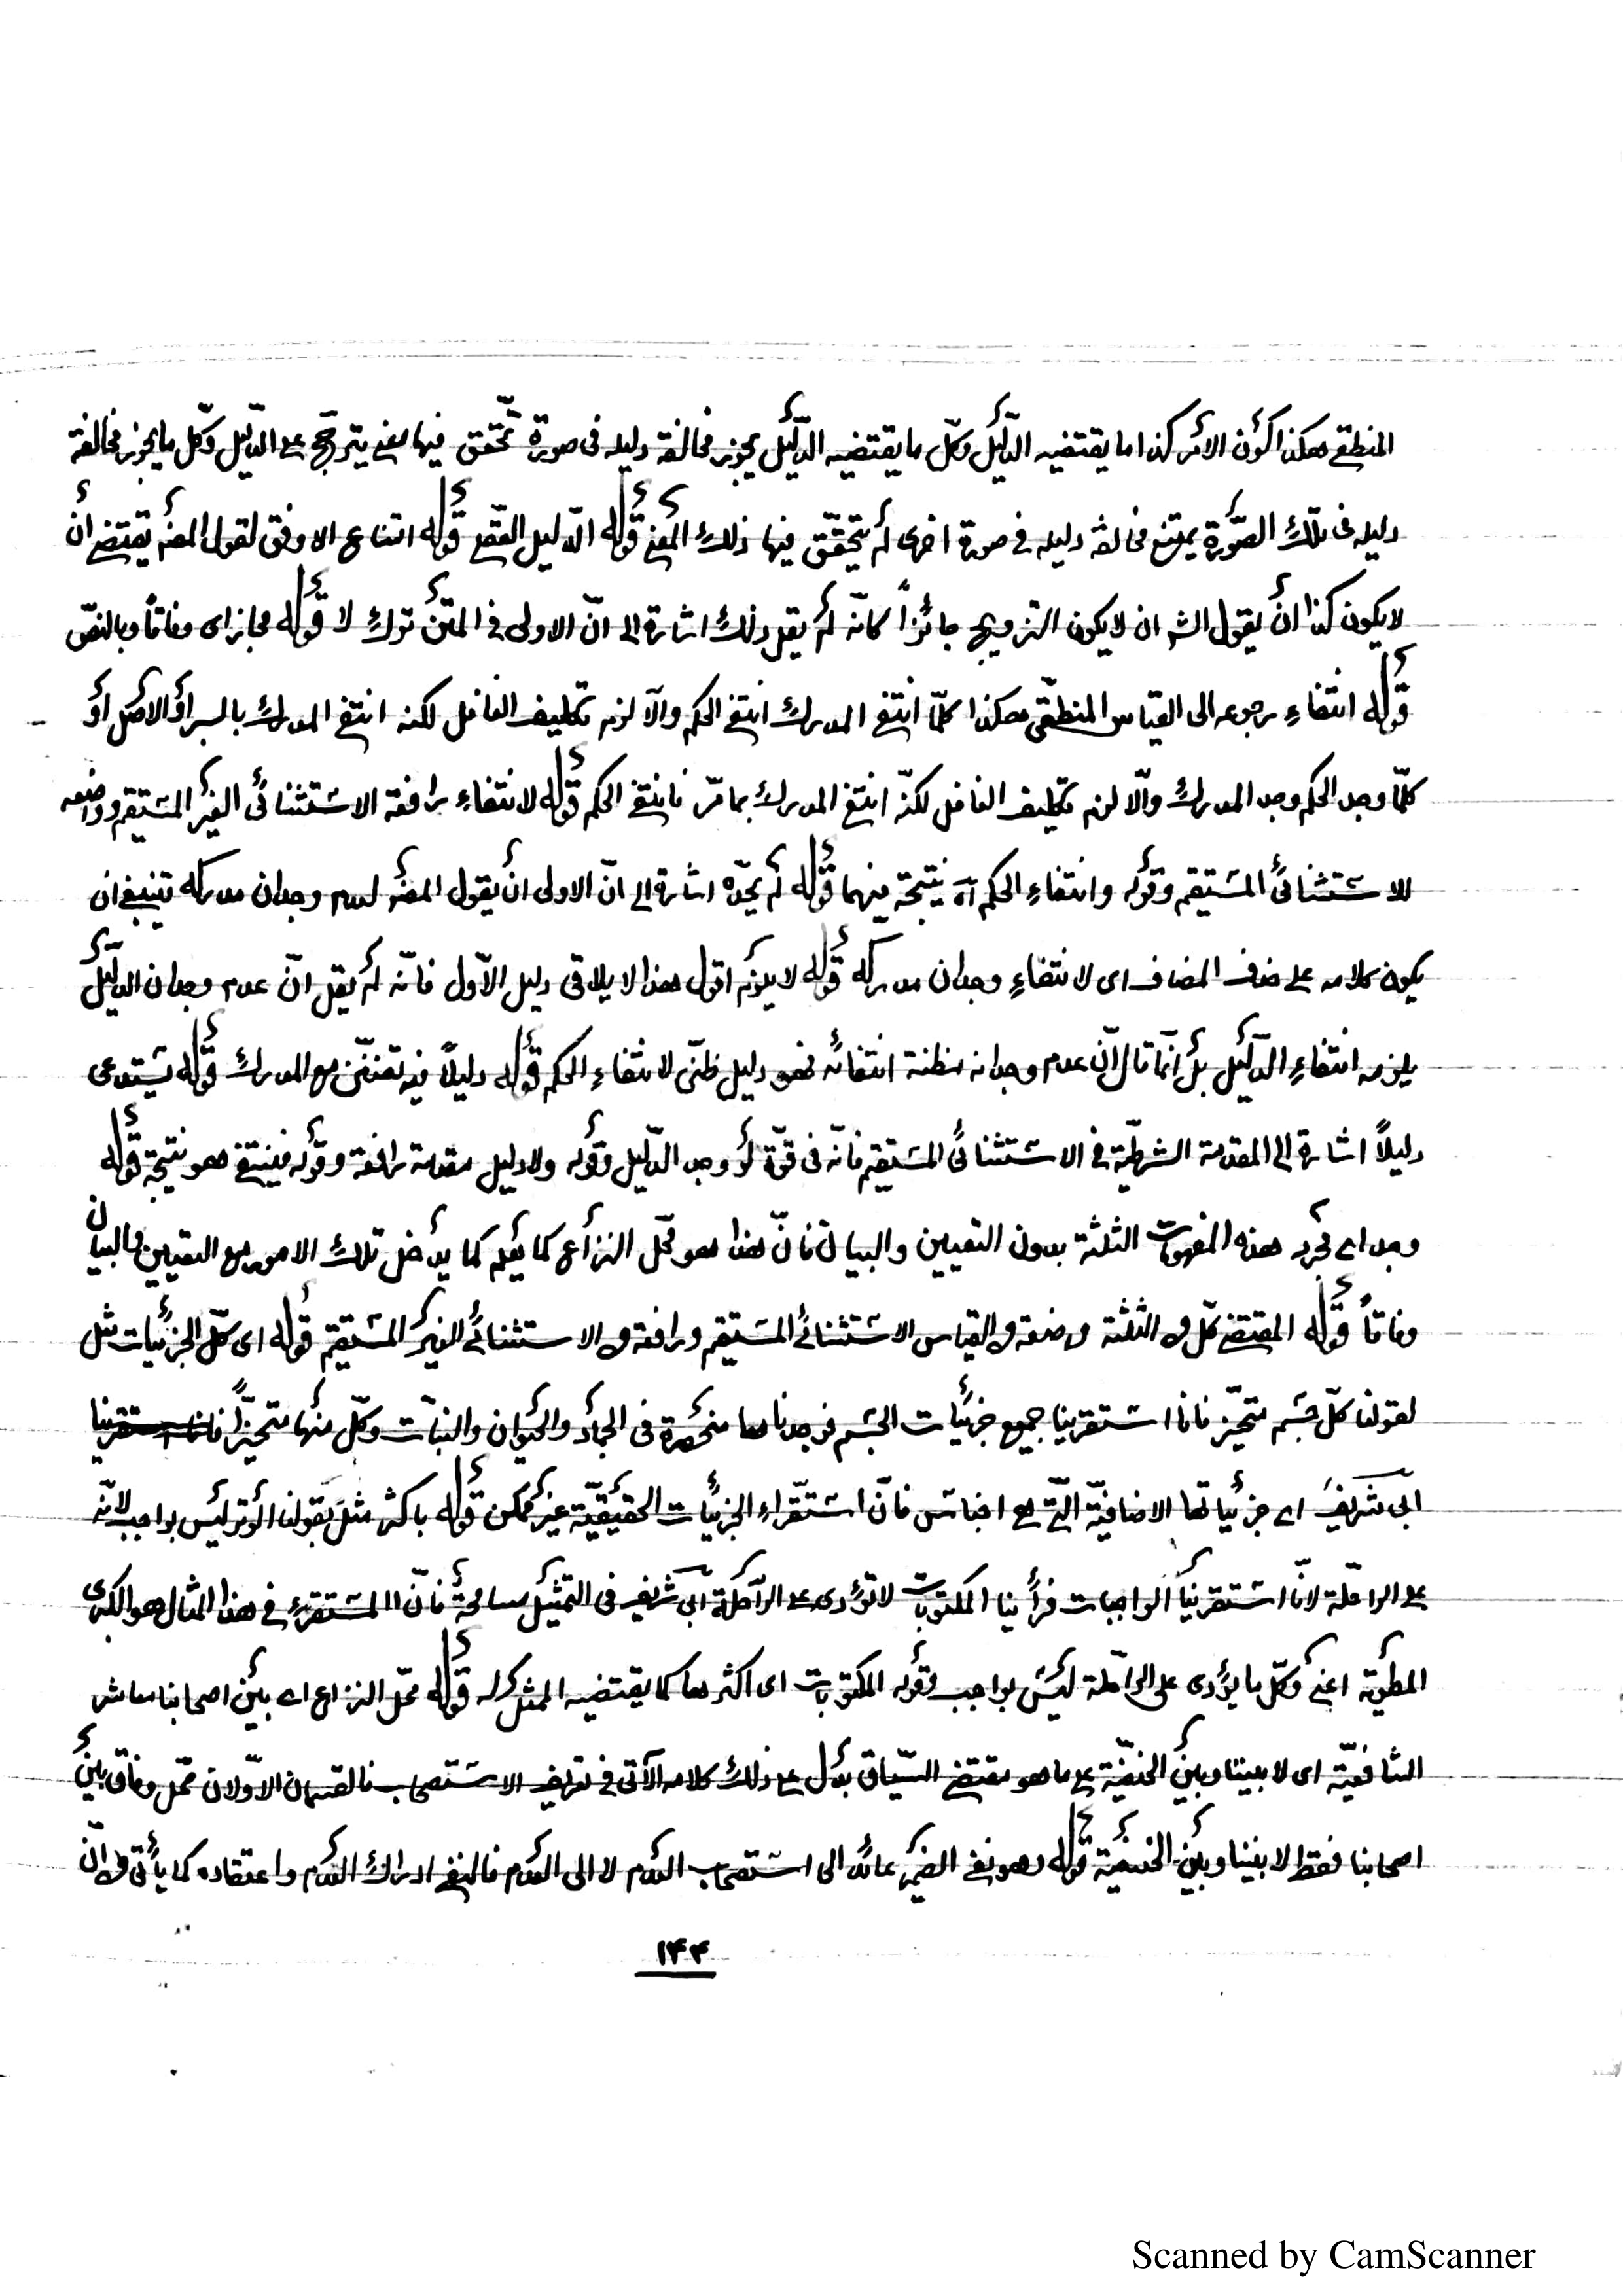 المنطقى هكذا كون الامر كذا ما يقتضيه الدّليل وكلّ ما يقتضيه الدّليل يجوز مخالفة دليله فى صورة تحقّق فيها معنى يترجّح على الدّليل وكلّ ما يجوز مخالفة
دليله فى تلك الصّورة يمتنع مخالفة دليله فى صورة اخرى لم يتحقّق فيها ذلك المعنى قوله الدليل قوله امتناع الاوفق لقول المصنف يقتضى ان
لا يكون كذا ان يقول الش ان لا يكون التزويج جائزاً كانّه لم يقل ذلك اشارة الى انّ الاولى فى المتن ترك لا قوله مجاز اى وفاقاً وبالنصّ
قوله انتفاء رجوعه الى القياس المنطقى هكذا كلّما انتفى المدرك انتفى الحكم والّا لزم تكليف الغافل لكنه انتفى المدرك بالسبر او الاصل او
كلّما وجد الحكم وجد المدرك والّا لزم تكليف الغافل لكنّه انتفى المدرك بما مرّ فانتفى الحكم قوله لانتفاء رافعة الاستثنائى الغير المستقيم وواضعه
للاستثنائى المستقيم وقوله وانتفاء الحكم اه نتيجة منهما قوله لم يجده اشارة الى انّ الاولى ان يقول المصنف لعدم وجدان مدركه فينبغى ان
يكون كلامه على حذف المضاف اى لانتفاء وجدان مدركه قوله لا يلزم اقول هذا لا يلاقى دليل الاّول فانّه لم يقل انّ عدم وجدان الدّليل
يلزمه انتفاء الدّليل بل انّما قال انّ عدم وجدانه مظنة انتفائه فهو دليل ظنّى لانتفاء الحكم قوله دليلاً فيه تفنّن مع المدرك قوله تستدعى
دليلاً اشارة الى المقدمة الشرطيّة فى الاستثنائى المستقيم فانّه فى قوّة لو وجد الدّليل وقوله ولا دليل مقدمة رافعة وقوله فينتفى هو نتيجة قوله
وجد اى مجرد هذه المفهومات الثلثة بدون التعيين والبيان فانّ هذا هو محلّ النزاع كما يعلم كما يدخل تلك الامور مع التعيين والبيان
وفاقاً قوله المقتضى كلّ من الثلثة وضعة فى القياس الاستثنائى المستقيم ورافعة فى الاستثنائى الغير المستقيم قوله اى كلّ الجزئيات مثل
لقولنا كلّ جسم متحيّز فانا استقرينا جميع جزئيات الجسم فوجدناها منحصرة فى الجماد والحيوان والنبات وكلّ منها متحيّزاً فانا استقرينا
ابى شريف اى جزئياتها الاضافيّة الّتى هى اجناس فانّ استقراء الجزئيات الحقيقيّة غير ممكن قوله باكثر مثل بقولنا الوتر ليس بواجب لانّه
على الراحلة لانّا استقرينا الواجبات فرأينا المكتوبات لا تؤدى على الراحلة ابى شريف فى التمثيل مسامحة فانّ المستقرء فى هذا المثال هو الكبرى
المطوية اعنى وكلّ ما يؤدى على الراحلة ليس بواجب وقوله المكتوبات اى اكثرها كما يقتضيه الممثل له قوله محل النزاع اى بين اصحابنا معاشر
الشافعيّة اى لا بيننا وبين الحنفيّة على ما هو مقتضى السّياق يدل على ذلك كلامه الآتى فى تعريف الاستصحاب فالقسمان الاوّلان محل وفاق بين
اصحابنا فقط لا بيننا وبين الحنفية قوله وهو نفى الضمير عائد الى استصحاب العدم لا الى العدم فالنفى ادراك العدم واعتقاده كما يأتى انّ
١٤٤
Scanned by CamScanner